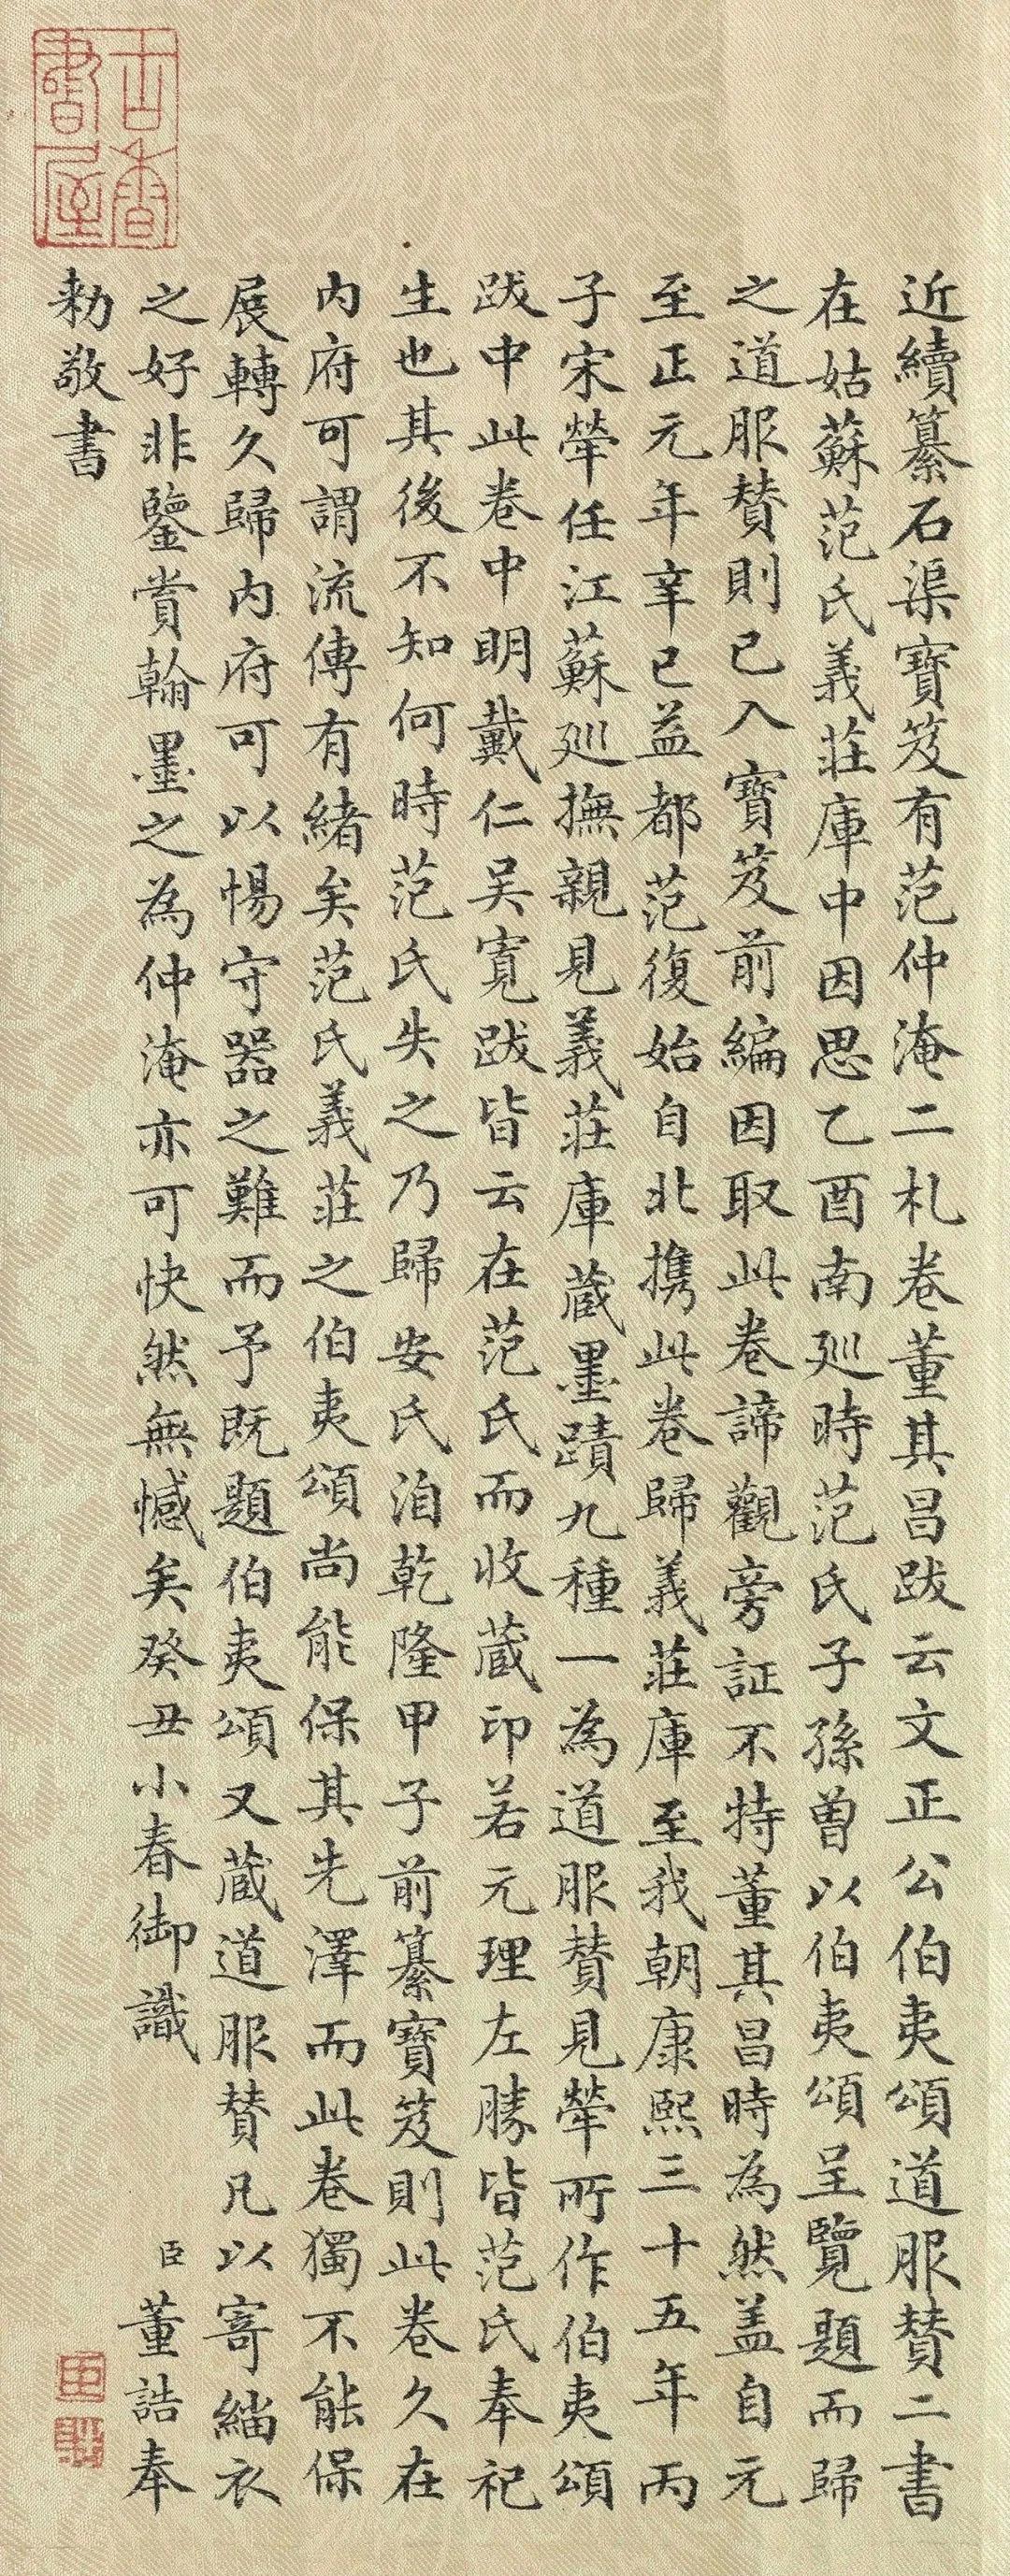 近續纂石渠寶笈有范仲淹二札卷董其昌跋云文正公伯夷頌道服贊二書
在姑蘇范氏義莊庫中因思乙酉南巡時范氏子孫曾以伯夷頌呈覽題而歸
之道服贊則已入寶笈前編因取此卷諦觀旁証不特董其昌時為然盖自元
至正元年辛已益都范復始自北攜此卷歸義莊庫至我朝康熙三十五年丙
子宋犖任江蘇巡撫親見義莊庫蔵墨蹟九種一為道服贊見犖所作伯夷頌
跋中此卷中明戴仁吴寬跋皆云在范氏而收蔵印若元理左勝皆范氏奉祀
生也其後不知何時范氏失之乃歸安氏洎乾隆甲子前纂寶笈則此卷久在
内府可謂流傳有緒矣范氏義莊之伯夷頌尚能保其先澤而此卷獨不能保
展轉久歸内府可以惕守器之難而予既題伯夷頌又蔵道服贊凡以寄緇衣
之好非鑒賞翰墨之為仲淹亦可快然無憾矣癸丑小春御識 臣董誥奉
勑敬書
古香書屋
臣